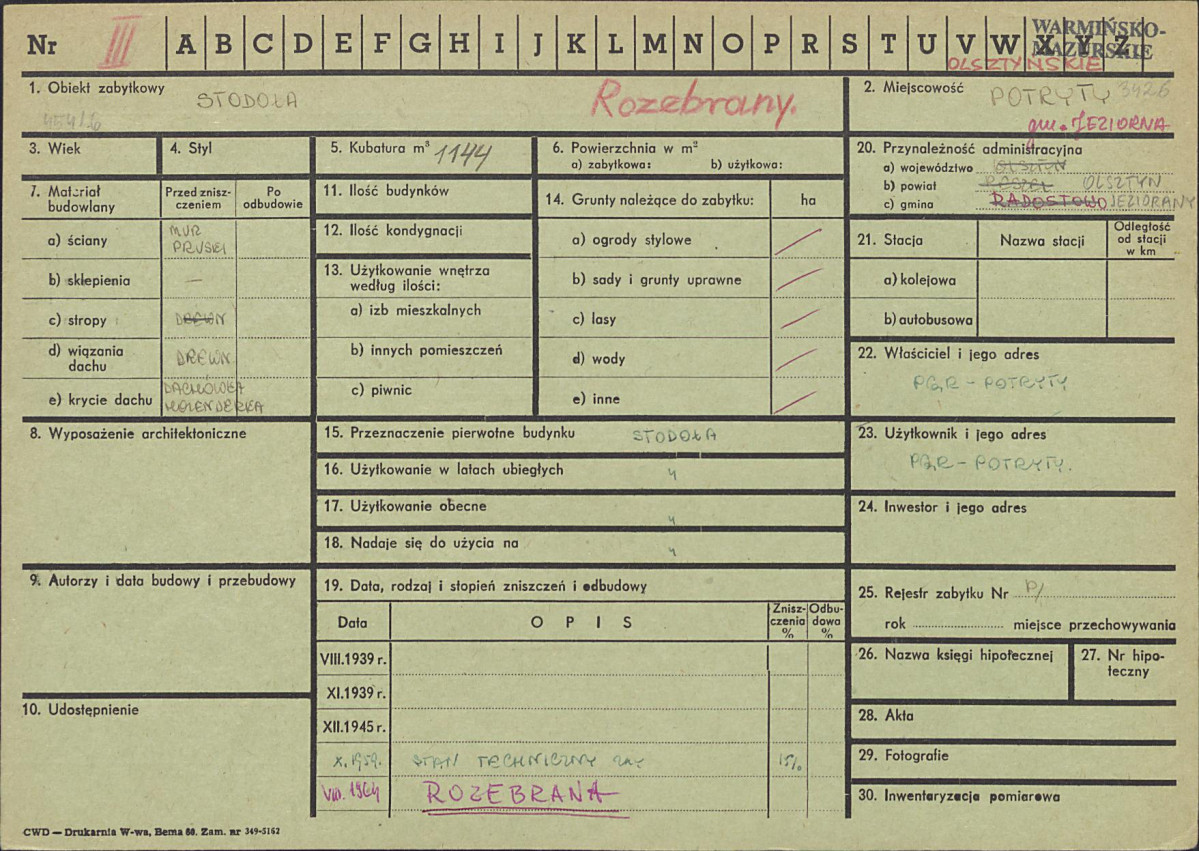 Nr III A B C D E F G H I J K L M N O P R S T U V W X Y Z
WARMIŃSKO-
MAZURSKIE
OLSZTYŃSKIE
1. Obiekt zabytkowy STODOŁA
Rozebrany.
2. Miejscowość POTRYTY 3426
gm. JEZIORNA
3. Wiek
4. Styl
5. Kubatura m³ 1144
6. Powierzchnia w m²
a) zabytkowa: b) użytkowa:
20. Przynależność administracyjna
a) województwo OLSZTYN
b) powiat RESZEL OLSZTYN
c) gmina RADOSTOWO JEZIORANY
7. Materiał budowlany
Przed znisz-
czeniem
Po
odbudowie
a) ściany MUR
PRUSKI
b) sklepienia —
c) stropy DREWN
d) wiązania
dachu DREWN
e) krycie dachu DACHÓWKA
HOLENDERKA
11. Ilość budynków
12. Ilość kondygnacji
13. Użytkowanie wnętrza
według ilości:
a) izb mieszkalnych
b) innych pomieszczeń
c) piwnic
14. Grunty należące do zabytku: ha
a) ogrody stylowe
b) sady i grunty uprawne
c) lasy
d) wody
e) inne
21. Stacja
Nazwa stacji
Odległość
od stacji
w km
a) kolejowa
b) autobusowa
22. Właściciel i jego adres
PGR - POTRYTY
8. Wyposażenie architektoniczne
15. Przeznaczenie pierwotne budynku STODOŁA
16. Użytkowanie w latach ubiegłych "
17. Użytkowanie obecne "
18. Nadaje się do użycia na "
23. Użytkownik i jego adres
PGR - POTRYTY.
24. Inwestor i jego adres
9. Autorzy i data budowy i przebudowy
19. Data, rodzaj i stopień zniszczeń i odbudowy
Data
OPIS
Znisz-
czenia
%
Odbu-
dowa
%
VIII.1939 r.
XI.1939 r.
XII.1945 r.
X.1959. STAN TECHNICZNY 15%
VIII. 1964 ROZEBRANA
25. Rejestr zabytku Nr
rok miejsce przechowywania
26. Nazwa księgi hipotecznej
27. Nr hipo-
teczny
10. Udostępnienie
28. Akta
29. Fotografie
30. Inwentaryzacja pomiarowa
CWD — Drukarnia W-wa, Bema 60. Zam. nr 349-5162